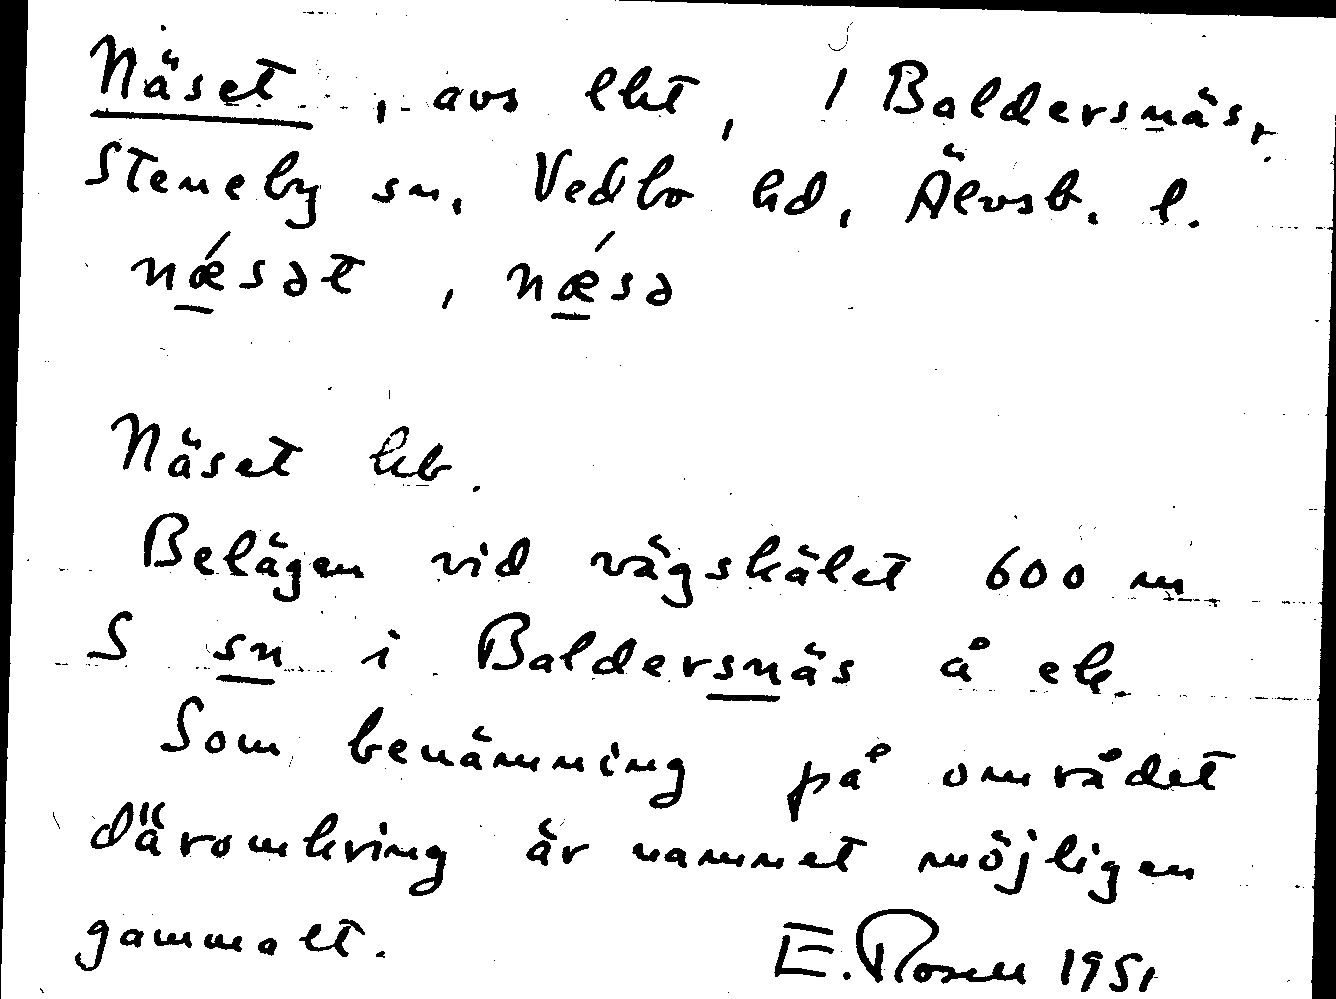 Näset, avs lht, / Baldersnäs,
Steneby sn, Vedbo hd, Älvsb. l.
nǽsət, nǽsə
Näset hb.
Belägen vid vägskälet 600 m
S sn i Baldersnäs å ek.
Som benämning på området
däromkring är namnet möjligen
gammalt.
E. Rosell 1951